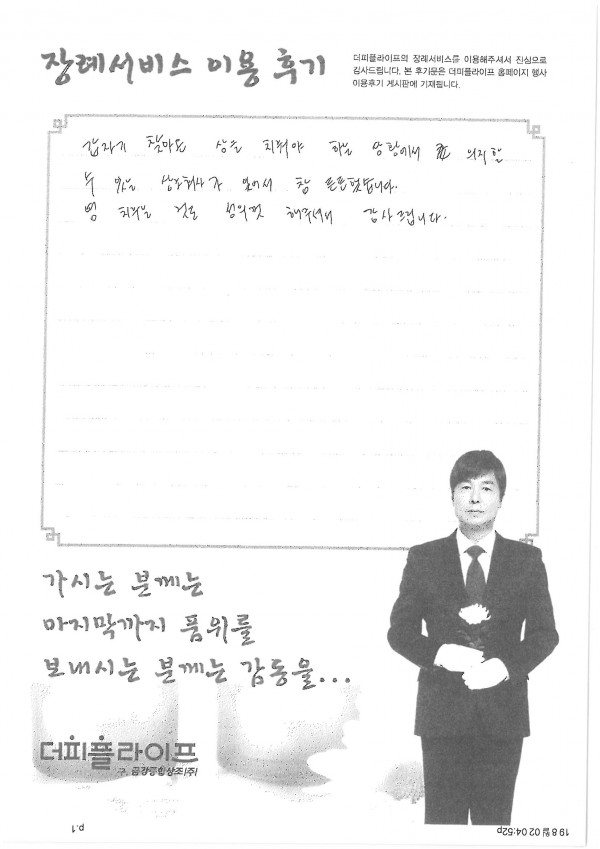 장례서비스 이용 후기
더피플라이프의 장례서비스를 이용해주셔서 진심으로
감사드립니다. 본 후기문은 더피플라이프 홈페이지 행사
이용후기 게시판에 기재됩니다.
갑자기 찾아온 상을 치뤄야 하는 상황에서 의지할
수 있는 상조회사가 있어서 참 든든했습니다.
성의껏 해주셔서 감사드립니다.
가시는 분께는
마지막까지 품위를
보내시는 분께는 감동을...
더피플라이프
구. 금강종합상조(주)
19 8월 02 04:52p
p.1